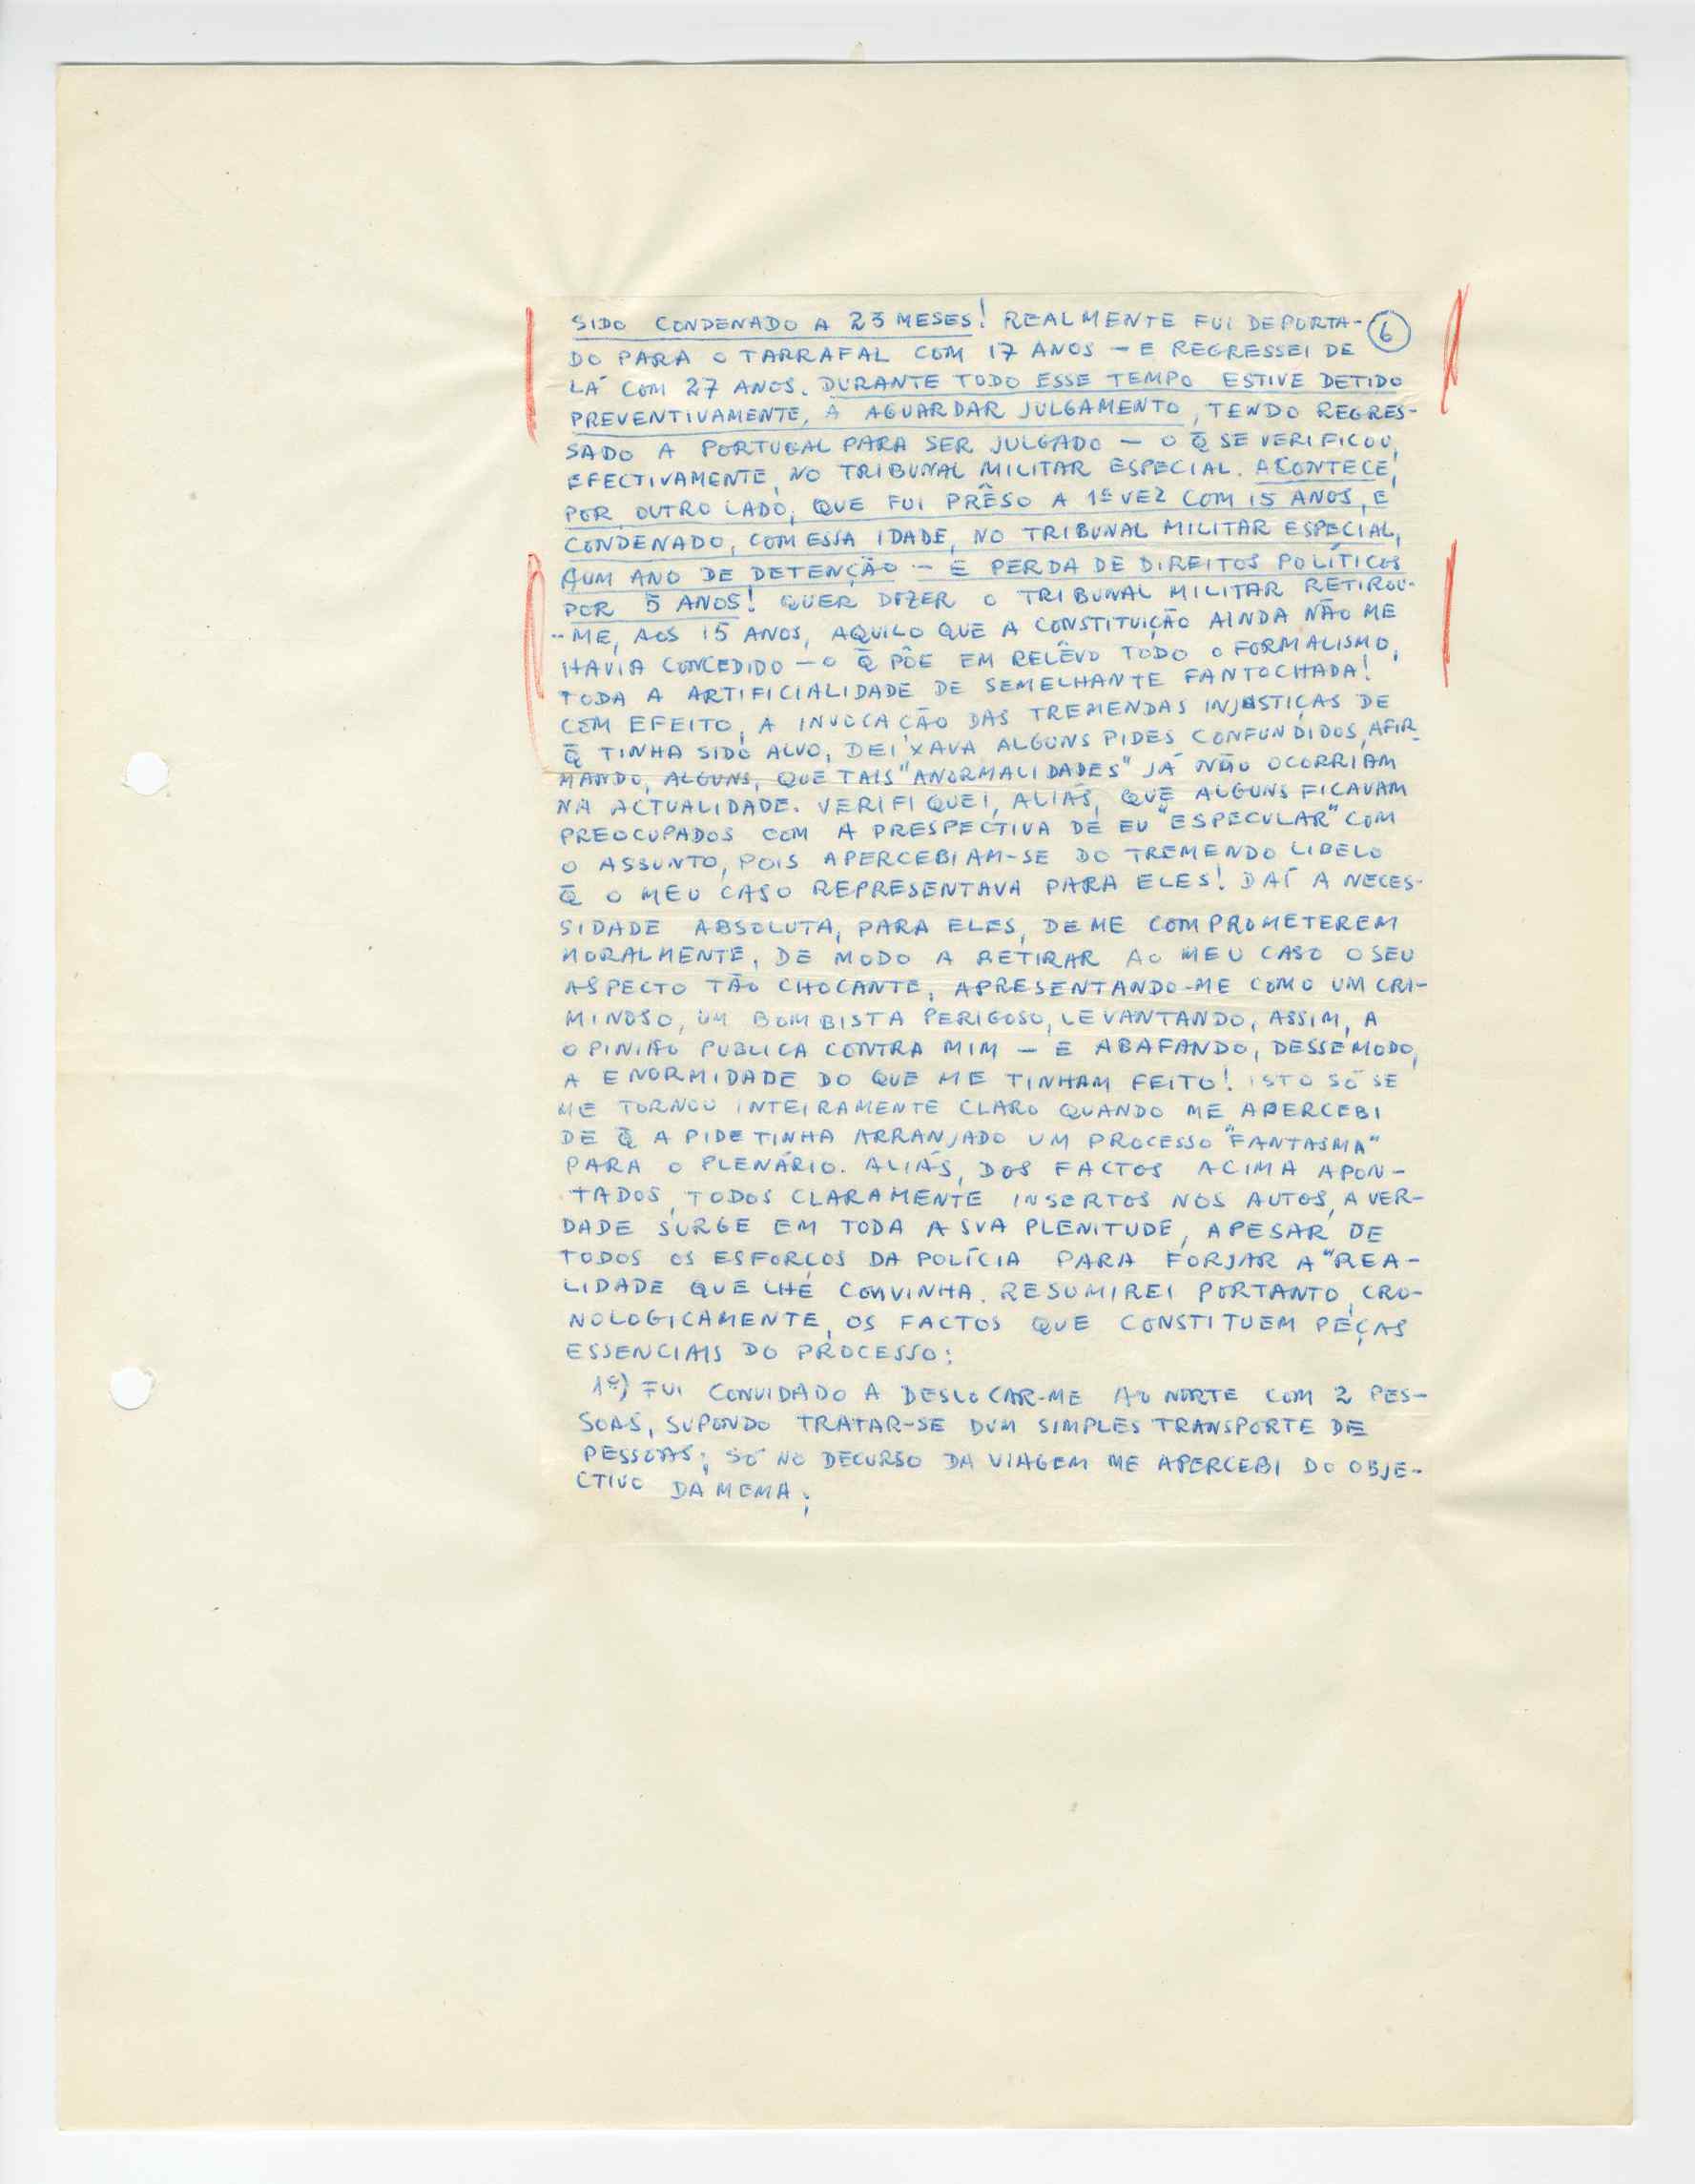 SIDO CONDENADO A 23 MESES! REALMENTE FUI DEPORTA- 6
DO PARA O TARRAFAL COM 17 ANOS – E REGRESSEI DE
LÁ COM 27 ANOS. DURANTE TODO ESSE TEMPO ESTIVE DETIDO
PREVENTIVAMENTE, A AGUARDAR JULGAMENTO, TENDO REGRES-
SADO A PORTUGAL PARA SER JULGADO – O Q̄ SE VERIFICOU,
EFECTIVAMENTE, NO TRIBUNAL MILITAR ESPECIAL. ACONTECE,
POR OUTRO LADO, QUE FUI PRÊSO A 1ª VEZ COM 15 ANOS, E
CONDENADO, COM ESSA IDADE, NO TRIBUNAL MILITAR ESPECIAL,
A UM ANO DE DETENÇÃO – E PERDA DE DIREITOS POLÍTICOS
POR 5 ANOS! QUER DIZER O TRIBUNAL MILITAR RETIROU-
-ME, AOS 15 ANOS, AQUILO QUE A CONSTITUIÇÃO AINDA NÃO ME
HAVIA CONCEDIDO – O Q̄ PÕE EM RELÊVO TODO O FORMALISMO,
TODA A ARTIFICIALIDADE DE SEMELHANTE FANTOCHADA!
COM EFEITO, A INVOCAÇÃO DAS TREMENDAS INJUSTIÇAS DE
Q̄ TINHA SIDO ALVO, DEIXAVA ALGUNS PIDES CONFUNDIDOS, AFIR-
MANDO, ALGUNS, QUE TAIS "ANORMALIDADES" JÁ NÃO OCORRIAM
NA ACTUALIDADE. VERIFIQUEI, ALIÁS, QUE ALGUNS FICAVAM
PREOCUPADOS COM A PRESPECTIVA DE EU "ESPECULAR" COM
O ASSUNTO, POIS APERCEBIAM-SE DO TREMENDO LIBELO
Q̄ O MEU CASO REPRESENTAVA PARA ELES! DAÍ A NECES-
SIDADE ABSOLUTA, PARA ELES, DE ME COMPROMETEREM
MORALMENTE, DE MODO A RETIRAR AO MEU CASO O SEU
ASPECTO TÃO CHOCANTE, APRESENTANDO-ME COMO UM CRI-
MINOSO, UM BOMBISTA PERIGOSO, LEVANTANDO, ASSIM, A
OPINIÃO PUBLICA CONTRA MIM – E ABAFANDO, DESSE MODO,
A ENORMIDADE DO QUE ME TINHAM FEITO! ISTO SÓ SE
ME TORNOU INTEIRAMENTE CLARO QUANDO ME APERCEBI
DE Q̄ A PIDE TINHA ARRANJADO UM PROCESSO "FANTASMA"
PARA O PLENÁRIO. ALIÁS, DOS FACTOS ACIMA APON-
TADOS, TODOS CLARAMENTE INSERTOS NOS AUTOS, A VER-
DADE SURGE EM TODA A SUA PLENITUDE, APESAR DE
TODOS OS ESFORÇOS DA POLÍCIA PARA FORJAR A "REA-
LIDADE QUE LHE CONVINHA. RESUMIREI PORTANTO, CRO-
NOLOGICAMENTE, OS FACTOS QUE CONSTITUEM PEÇAS
ESSENCIAIS DO PROCESSO:
1º) FUI CONVIDADO A DESLOCAR-ME AO NORTE COM 2 PES-
SOAS, SUPONDO TRATAR-SE DUM SIMPLES TRANSPORTE DE
PESSOAS; SÓ NO DECURSO DA VIAGEM ME APERCEBI DO OBJE-
CTIVO DA MEMA;